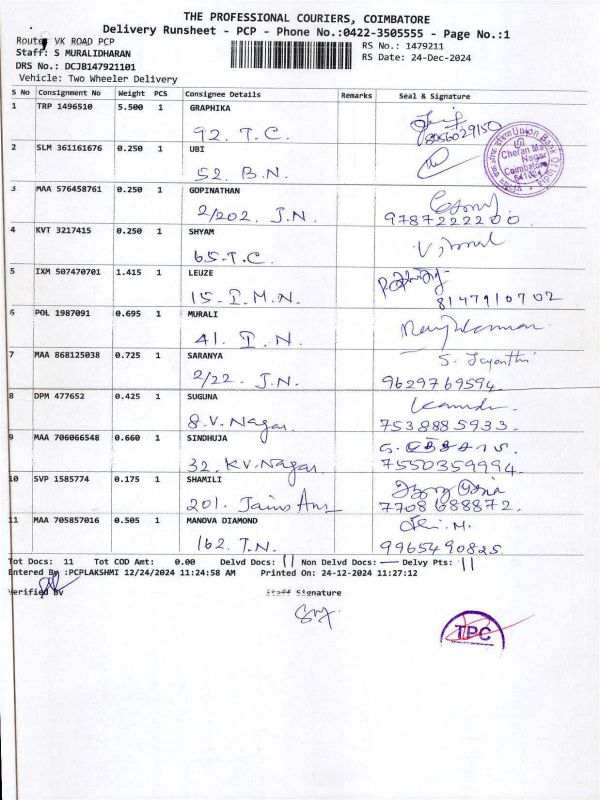 THE PROFESSIONAL COURIERS, COIMBATORE
Delivery Runsheet - PCP - Phone No.:0422-3505555 - Page No.:1
Route: VK ROAD PCP
RS No.: 1479211
Staff: S MURALIDHARAN
RS Date: 24-Dec-2024
DRS No.: DCJB147921101
Vehicle: Two Wheeler Delivery
S No Consignment No Weight PCS Consignee Details Remarks Seal & Signature
1 TRP 1496510 5.500 1 GRAPHIKA
92. T.C. 8056029150
2 SLM 361161676 0.250 1 UBI
52. B.N.
Union Bank Of India
Cheran Ma Nagar
Coimbatore
3 MAA 576458761 0.250 1 GOPINATHAN
2/202. J.N. 9787222200
4 KVT 3217415 0.250 1 SHYAM
65. T.C.
5 IXM 507470701 1.415 1 LEUZE
15. I.M.N. 8147910702
6 POL 1987091 0.695 1 MURALI
41. I.N.
7 MAA 868125038 0.725 1 SARANYA S. Jayanthi
2/22. J.N. 9629769594
8 DPM 477652 0.425 1 SUGUNA
8.V. Nagar 7538885933.
9 MAA 706066548 0.660 1 SINDHUJA
32. KV. Nagar 7550359994
10 SVP 1585774 0.175 1 SHAMILI
201. Jains 7708688872.
11 MAA 705857016 0.505 1 MANOVA DIAMOND
162. J.N. 9965490825
Tot Docs: 11 Tot COD Amt: 0.00 Delvd Docs: 11 Non Delvd Docs: — Delvy Pts: 11
Entered By :PCPLAKSHMI 12/24/2024 11:24:58 AM Printed On: 24-12-2024 11:27:12
Verified By Staff Signature
TPC